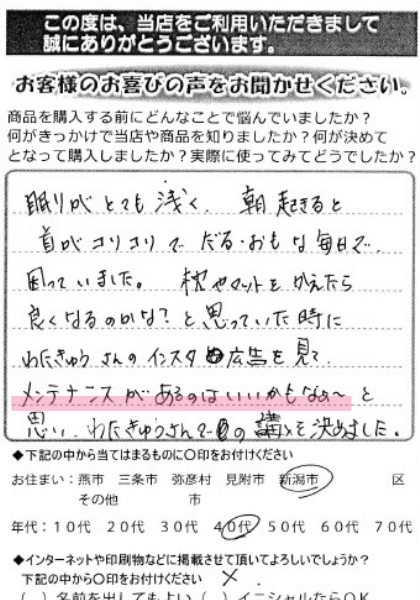 この度は、当店をご利用いただきまして
誠にありがとうございます。
お客様のお喜びの声をお聞かせください。
商品を購入する前にどんなことで悩んでいましたか？
何がきっかけで当店や商品を知りましたか？何が決めて
となって購入しましたか？実際に使ってみてどうでしたか？
眠りがとても浅く、朝起きると
首がコリコリでだる・おもな毎日で、
困っていました。枕やマットをかえたら
良くなるのかな？と思っていた時に
わたきゅうさんのインスタ広告を見て、
メンテナンスがあるのはいいかもなぁ〜と
思い、わたきゅうさんでの購入を決めました。
◆下記の中から当てはまるものに〇印をお付けください
お住まい：燕市 三条市 弥彦村 見附市 新潟市 区
その他 市
年代：10代 20代 30代 40代 50代 60代 70代
◆インターネットや印刷物などに掲載させて頂いてよろしいでしょうか？
下記の中から〇印をお付けください
（ ）名前を出してもよい（ ）イニシャルならOK